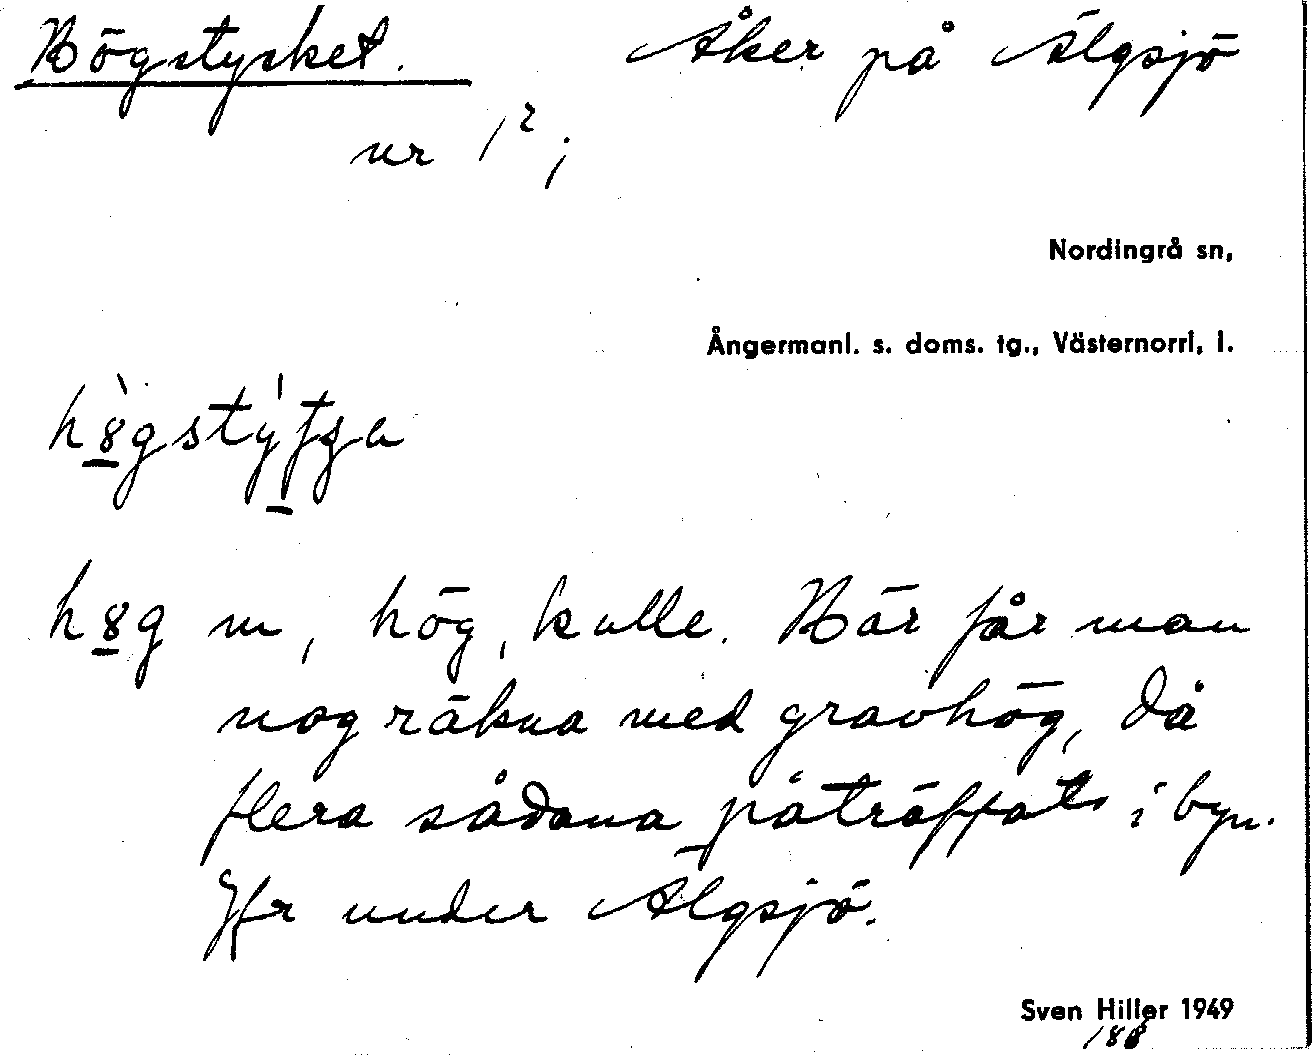 Högstycket. Åker på Älgsjö
nr 1²;
Nordingrå sn,
Ångermanl. s. doms. tg., Västernorrl. l.
hög m, hög, kulle. Här får man
nog räkna med gravhög, då
flera sådana påträffats i byn.
Jfr under Älgsjö.
Sven Hiller 1949
188